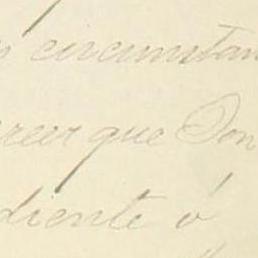 circunstan
creer que Don
diente ó